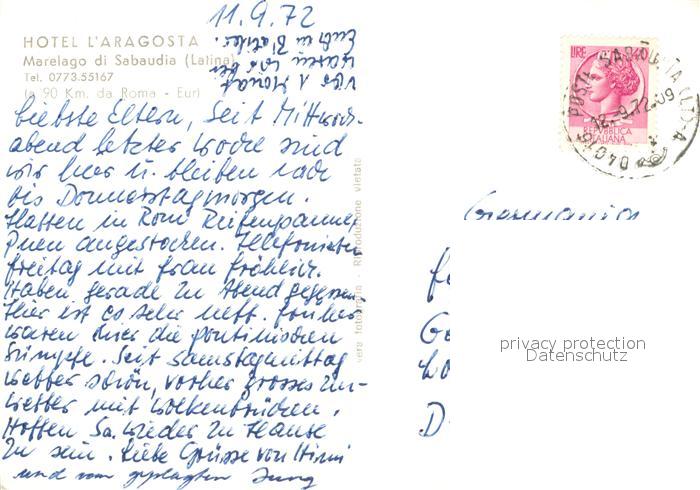 11.9.72
HOTEL L'ARAGOSTA
Marelago di Sabaudia (Latina)
Tel. 0773.55167
(a 90 Km. da Roma - Eur)
Vor 1 Monat
waren wir bei
Liebste Eltern, Seit Mittwoch-
abend letzter Woche sind
wir hier u. bleiben noch
bis Donnerstagmorgen.
Hatten in Rom Reifenpanne,
Pneu angestochen. Telefonierten
Freitag mit Frau Fröhlich.
Haben gerade zu Abend gegessen.
Hier ist es sehr nett. Früher
waren hier die pontinischen
Sümpfe. Seit Samstagmittag
Wetter schön, vorher grosses Un-
wetter mit Wolkenbrüchen.
Hoffen Sa. wieder zu Hause
zu sein. Liebe Grüsse von Mimi
und vom geplagten Jung
vera fotografia - Riproduzione vietata
LIRE 40
REPVBBLICA
ITALIANA
POSTE SABAUDIA (LT)-A
12.-9.72-09
04016
Germania
privacy protection
Datenschutz